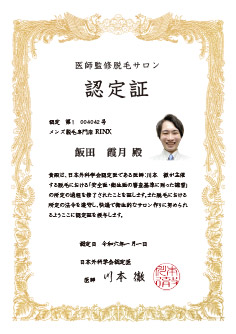 医師監修脱毛サロン
認定証
認定 第1 004042号
メンズ脱毛専門店 RINX
飯田 霞月 殿
貴殿は、日本外科学会認定医である医師:川本 徹が主催
する脱毛における「安全面・衛生面の審査基準に則った講習」
の所定の過程を修了されたことを証します。また脱毛における
所定の法令を遵守し、快適で衛生的なサロン作りに努められ
るようここに認定証を授与します。
認定日 令和六年一月一日
日本外科学会認定医
医師 川本 徹